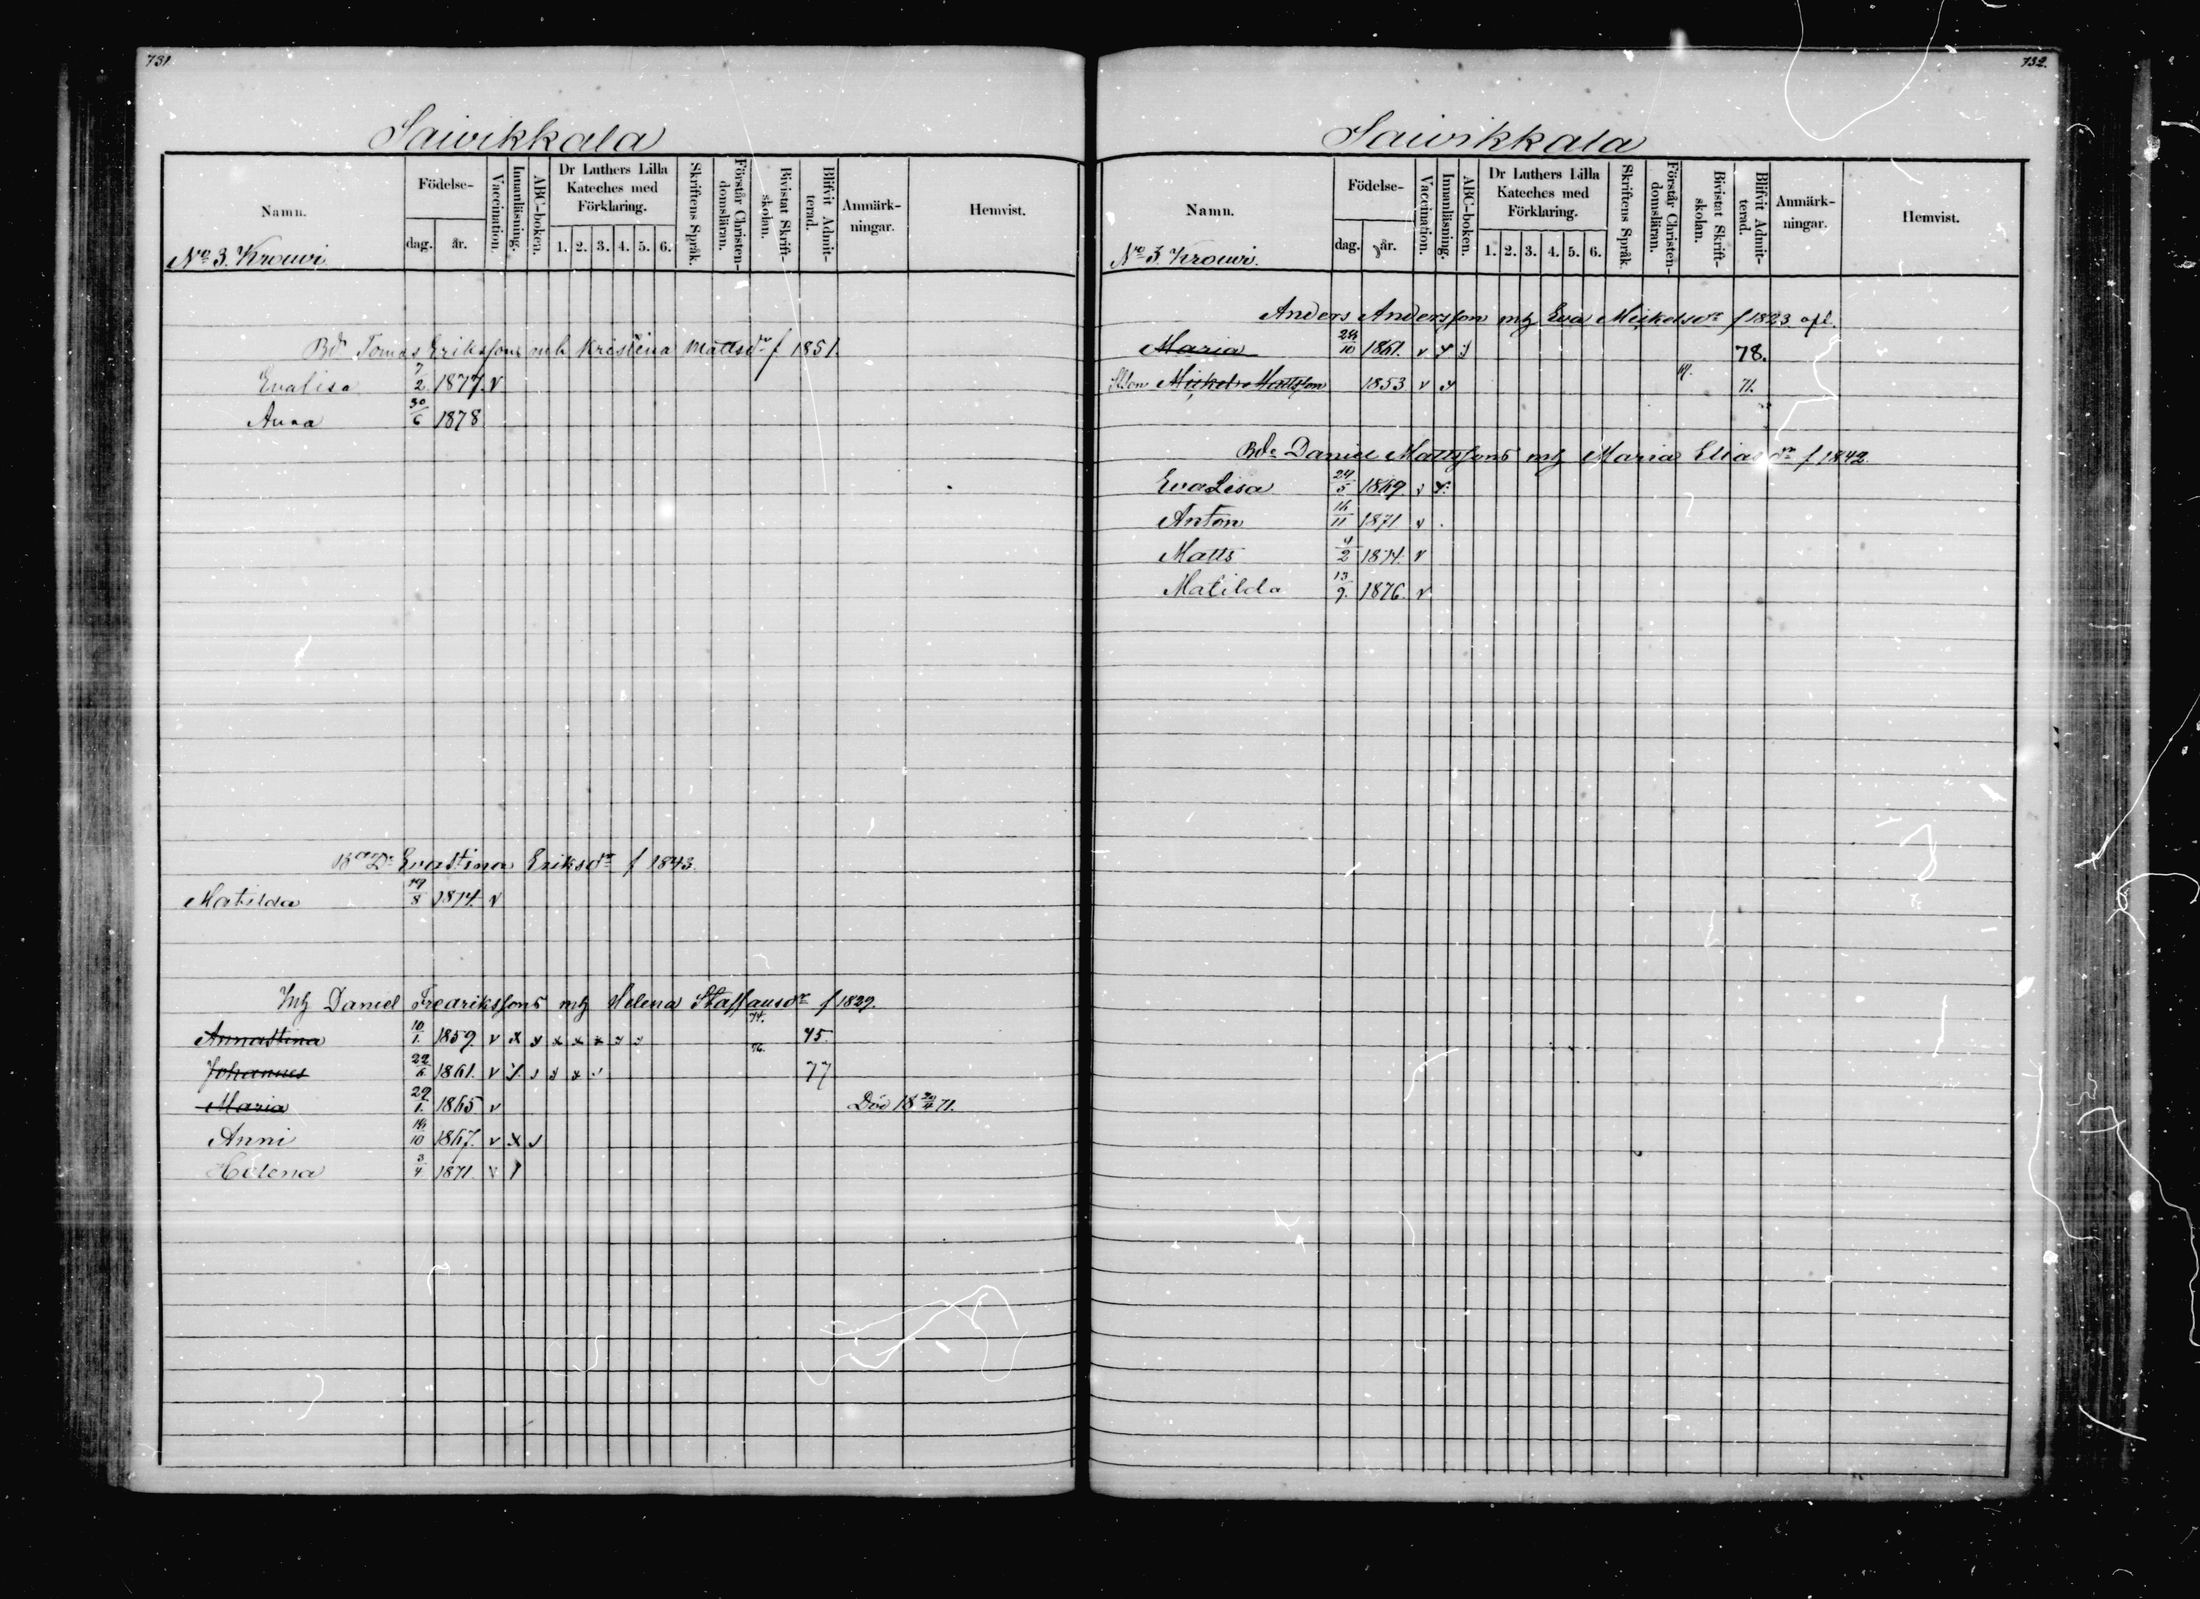 731.
Saivikkala
Namn.
Födelse-
dag. år.
Vaccination.
Innanläsning.
ABC-boken.
Dr Luthers Lilla Kateches med Förklaring.
1. 2. 3. 4. 5. 6.
Skriftens Språk.
Förstår Christen-domsläran.
Bivistat Skrift-skolan.
Blifvit Admit-terad.
Anmärk-ningar.
Hemvist.
No 3. Krouvi
Bd Tomas Erikssons mh Kristiina Mattsdr f 1851.
Evalisa 7/2 1877. v
Anna 30/6 1878
Evastina Eriksdr f 1843.
Matilda 19/8 1874. v
Inh Daniel Fredrikssons mh Helena Staffansdr f 1829.
Annastina 10/1. 1859. v x x x x x 74. 75.
Johannes 22/6 1861. v 76. 77
Maria 29/1. 1865 v Död 18 71.
Anni 10 1867. v x
Helena 3/4 1871. v
732.
Saivikkala
Namn.
Födelse-
dag. år.
Vaccination.
Innanläsning.
ABC-boken.
Dr Luthers Lilla Kateches med Förklaring.
1. 2. 3. 4. 5. 6.
Skriftens Språk.
Förstår Christen-domsläran.
Bivistat Skrift-skolan.
Blifvit Admit-terad.
Anmärk-ningar.
Hemvist.
No 3. Krouvi.
Anders Andersson mh Eva Mickelsdr f 1823
Maria 10 1861. v 78.
Mickel Mattsson 1853 v 71.
Bd. Daniel Mattssons mh Maria Eliasdr f 1842.
Eva Lisa 24/5 1869. v
Anton 16/11 1871 v
Matts 4/2 1874. v
Matilda 13/9. 1876. v